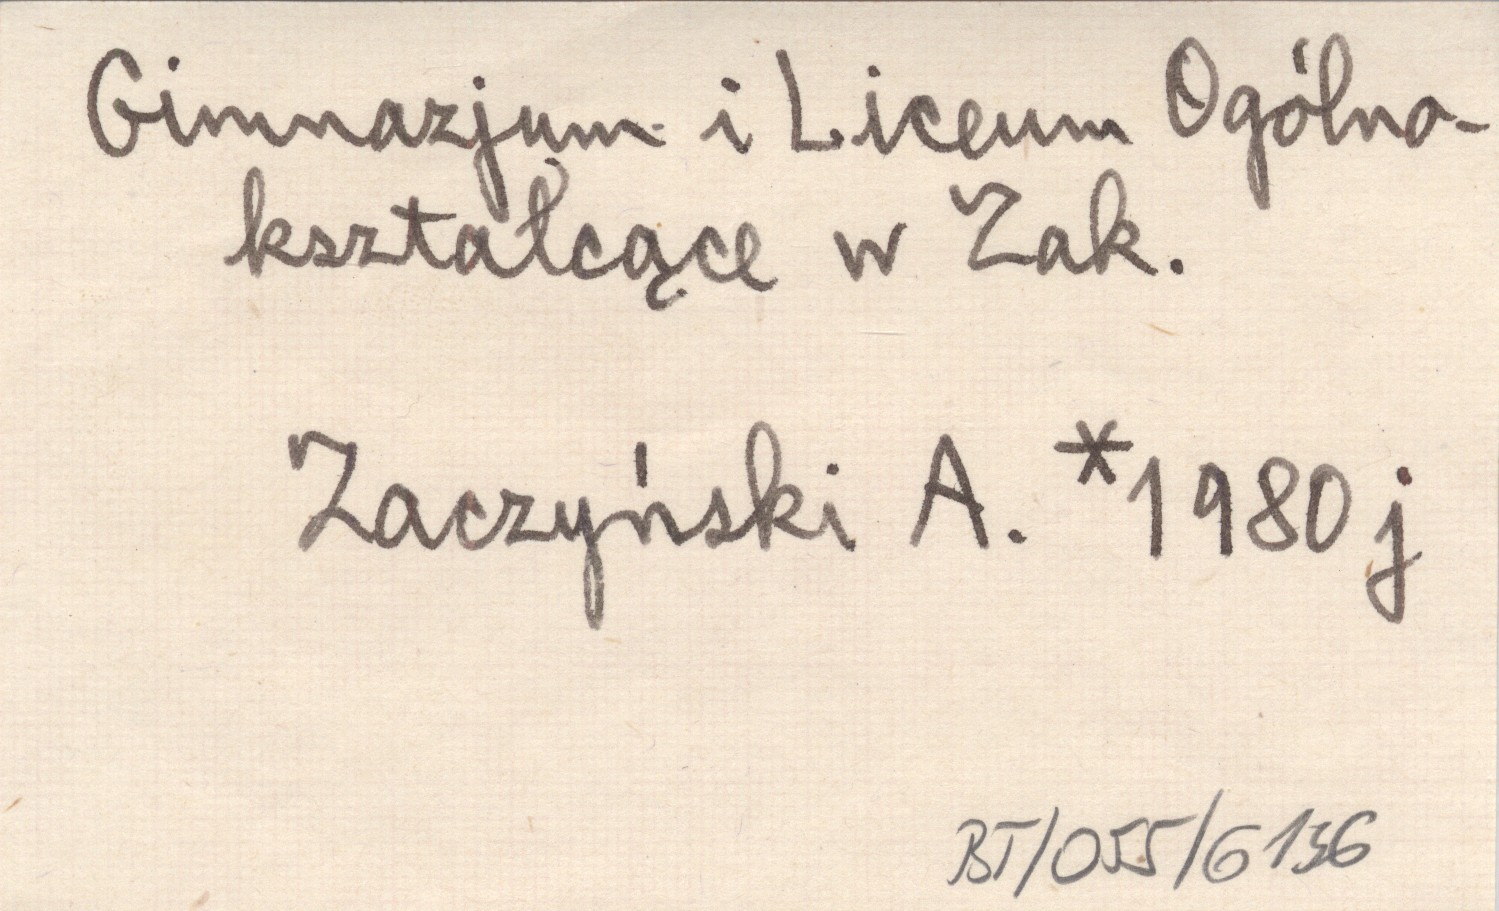 Gimnazjum i Liceum Ogólno-
kształcące w Zak.
Zaczyński A. *1980 j
BT/055/G136